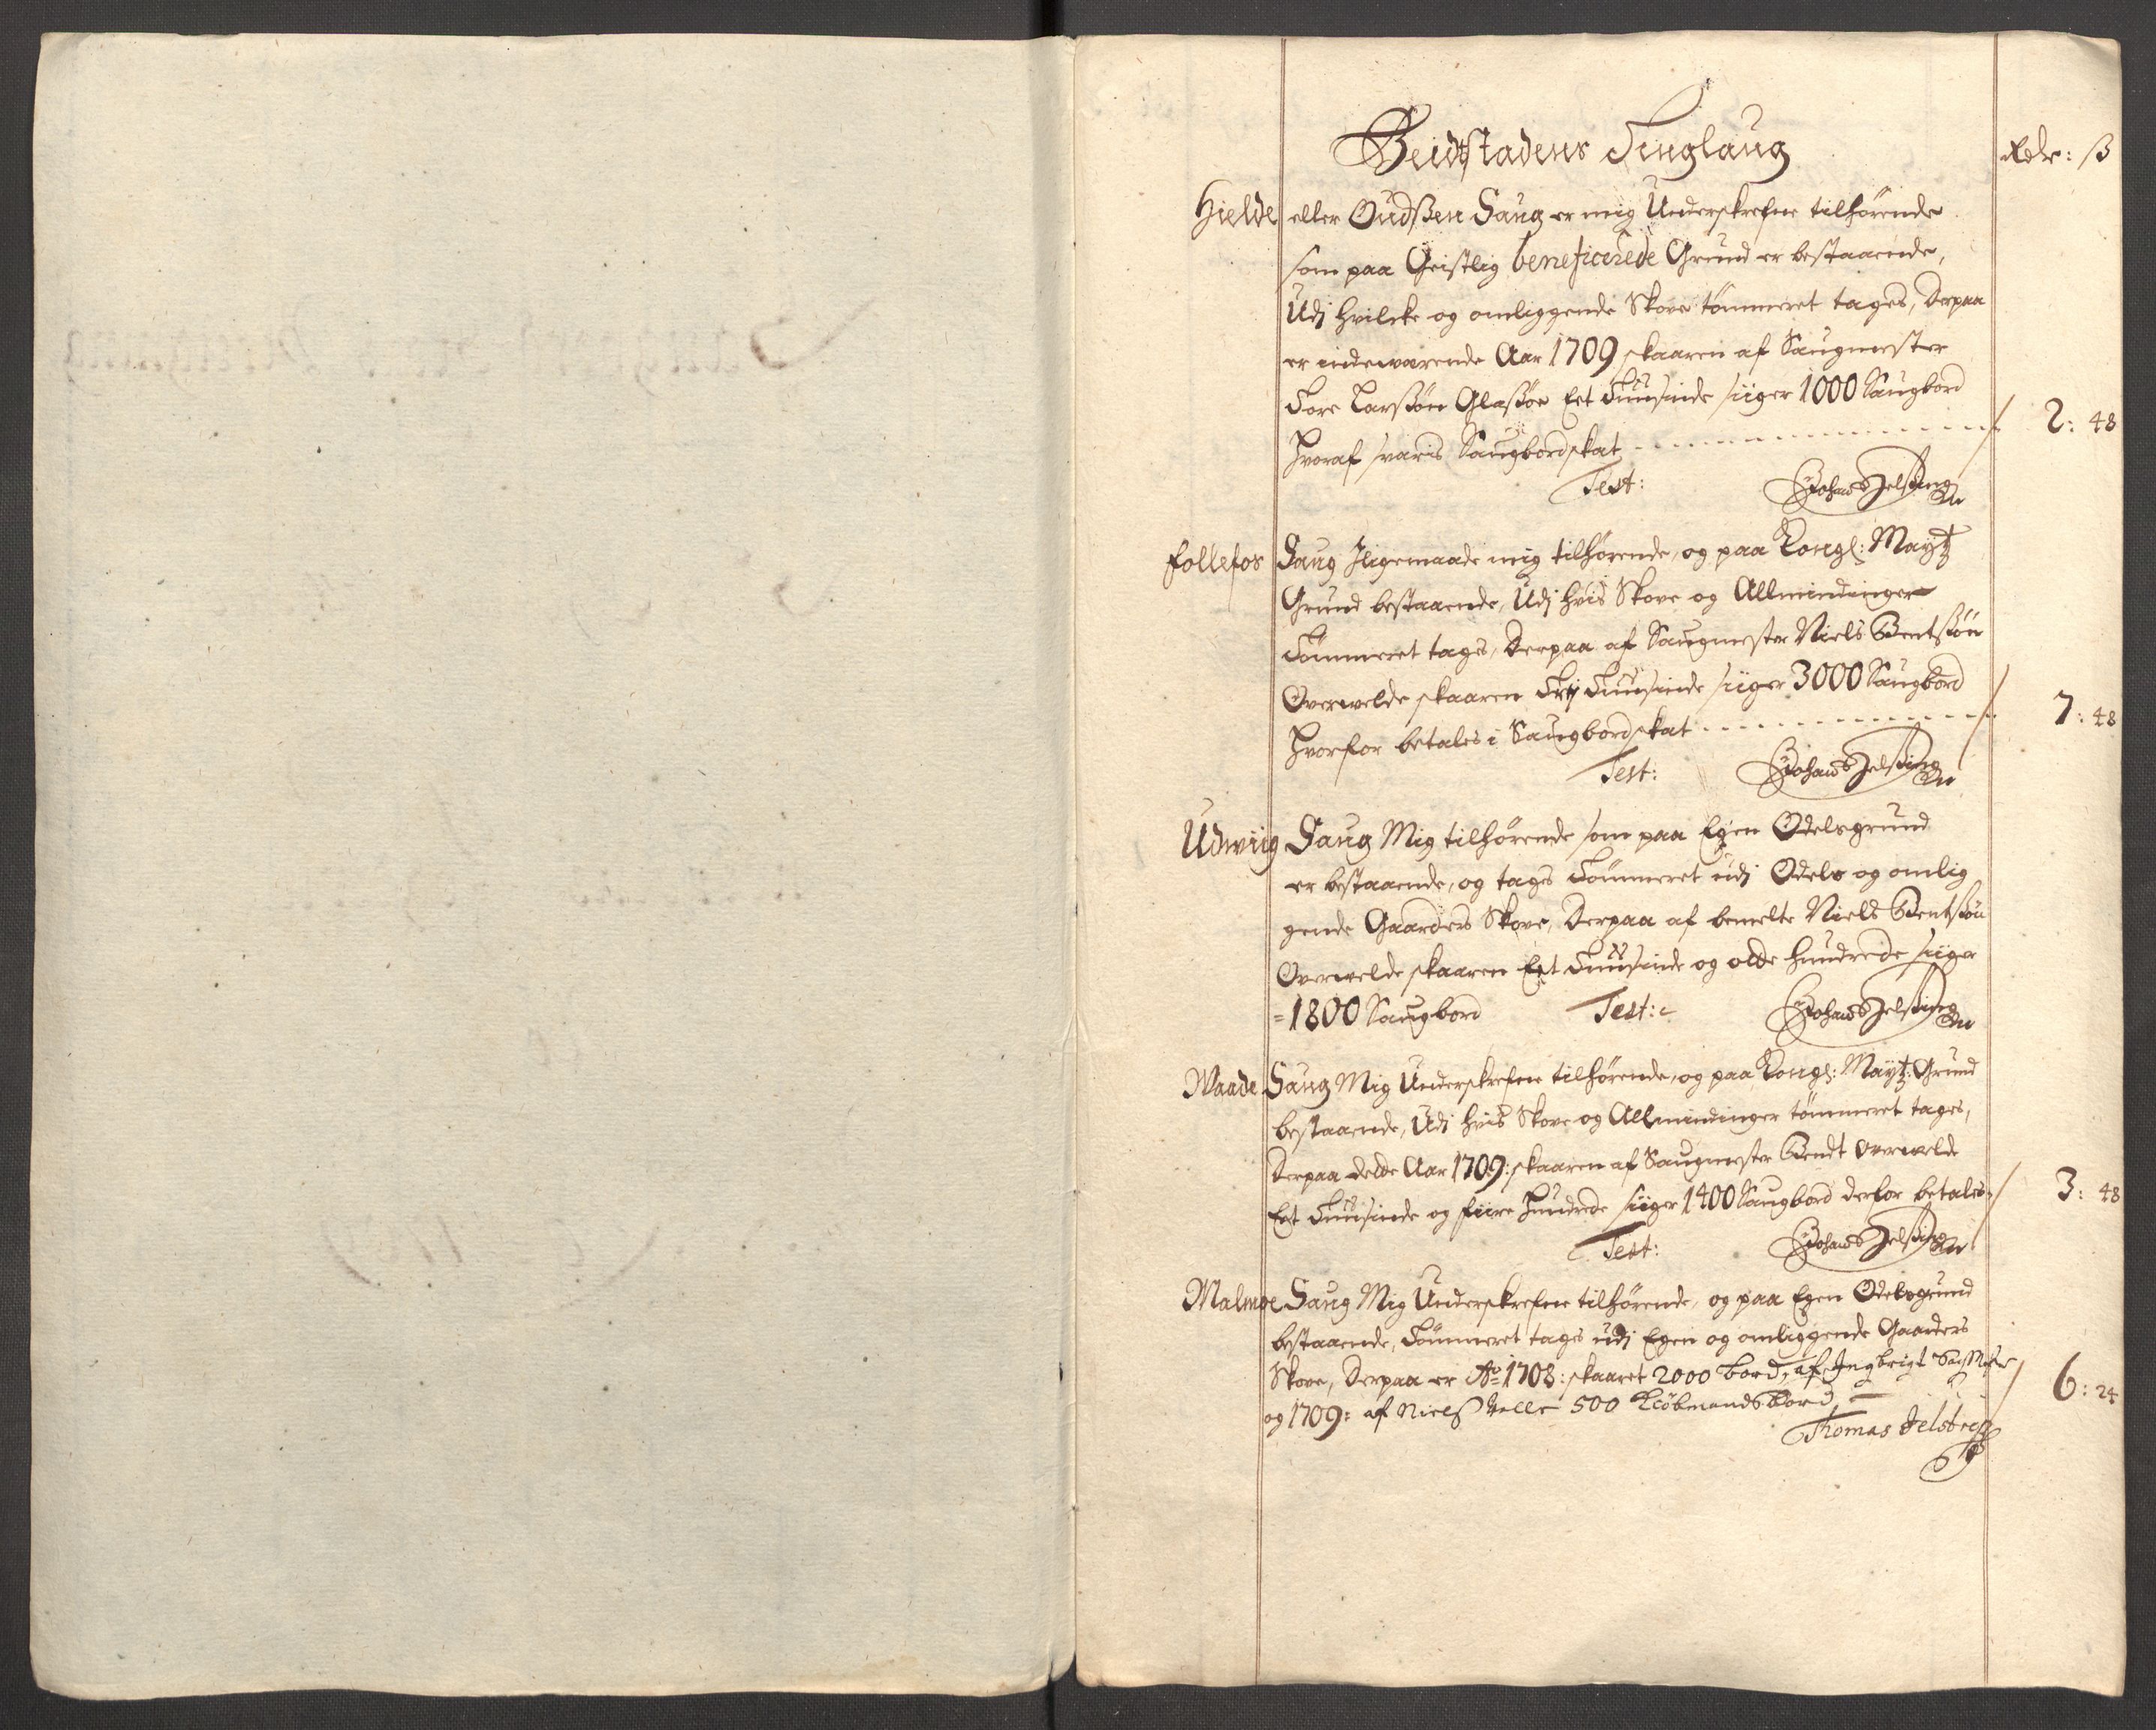 Beidstadens Tinglaug
Rdr: ß
Hielde eller Oudßen Saug er mig Underskrefne tilhørende
som paa Geistlig beneficerede Grund er bestaaende,
Udj hvilcke og omliggende Skove tømmeret tages, Derpaa
er indeverende Aar 1709 skaaren af Saugmester
Tore Larsøn Glaßøe Eet Tuusinde siiger 1000 Saugbord
Hvoraf svaris Saugbordskat 2: 48
Test:
Follefos Saug Iligemaade mig tilhørende, og paa Kongl: Maytz
Grund bestaaende, Udj hvis Skove og Allmindinger
Tømmeret tages, Derpaa af Saugmester Niels Bentsøn
Overvelde skaaren Trij Tuusinde siiger 3000 Saugbord
Hvorfor betales i Saugbordskat 7: 48
Test:
Udwiig Saug Mig tilhørende som paa Egen Odelsgrund
er bestaaende, og tages Tømmeret udj Odels og omlig
gende Gaarders Skove, Derpaa af bemelte Niels Bentsøn
Overvelde skaaren Eet Tuusinde og otte hundrede siiger
=1800 Saugbord Test:
Waade Saug Mig Underskrefne tilhørende, og paa Kongl: Maytz: Grund
bestaaende, Udj hvis Skove og Allmindinger tømmeret tages,
Derpaa dette Aar 1709: skaaren af Saugmester Bendt Overvelde
Eet Tuusinde og fiire Hundrede siiger 1400 Saugbord derfor betales 3: 48
Test:
Malmoe Saug Mig Underskrefne tilhørende, og paa Egen Odelsgrund
bestaaende, Tømmeret tages udj Egen og omliggende Gaarders
Skove, Derpaa er Ao 1708: skaaret 2000 bord, af Ingbrigt
og 1709: af Nielß Kiøbmandsbord 500 6: 24
Thomas